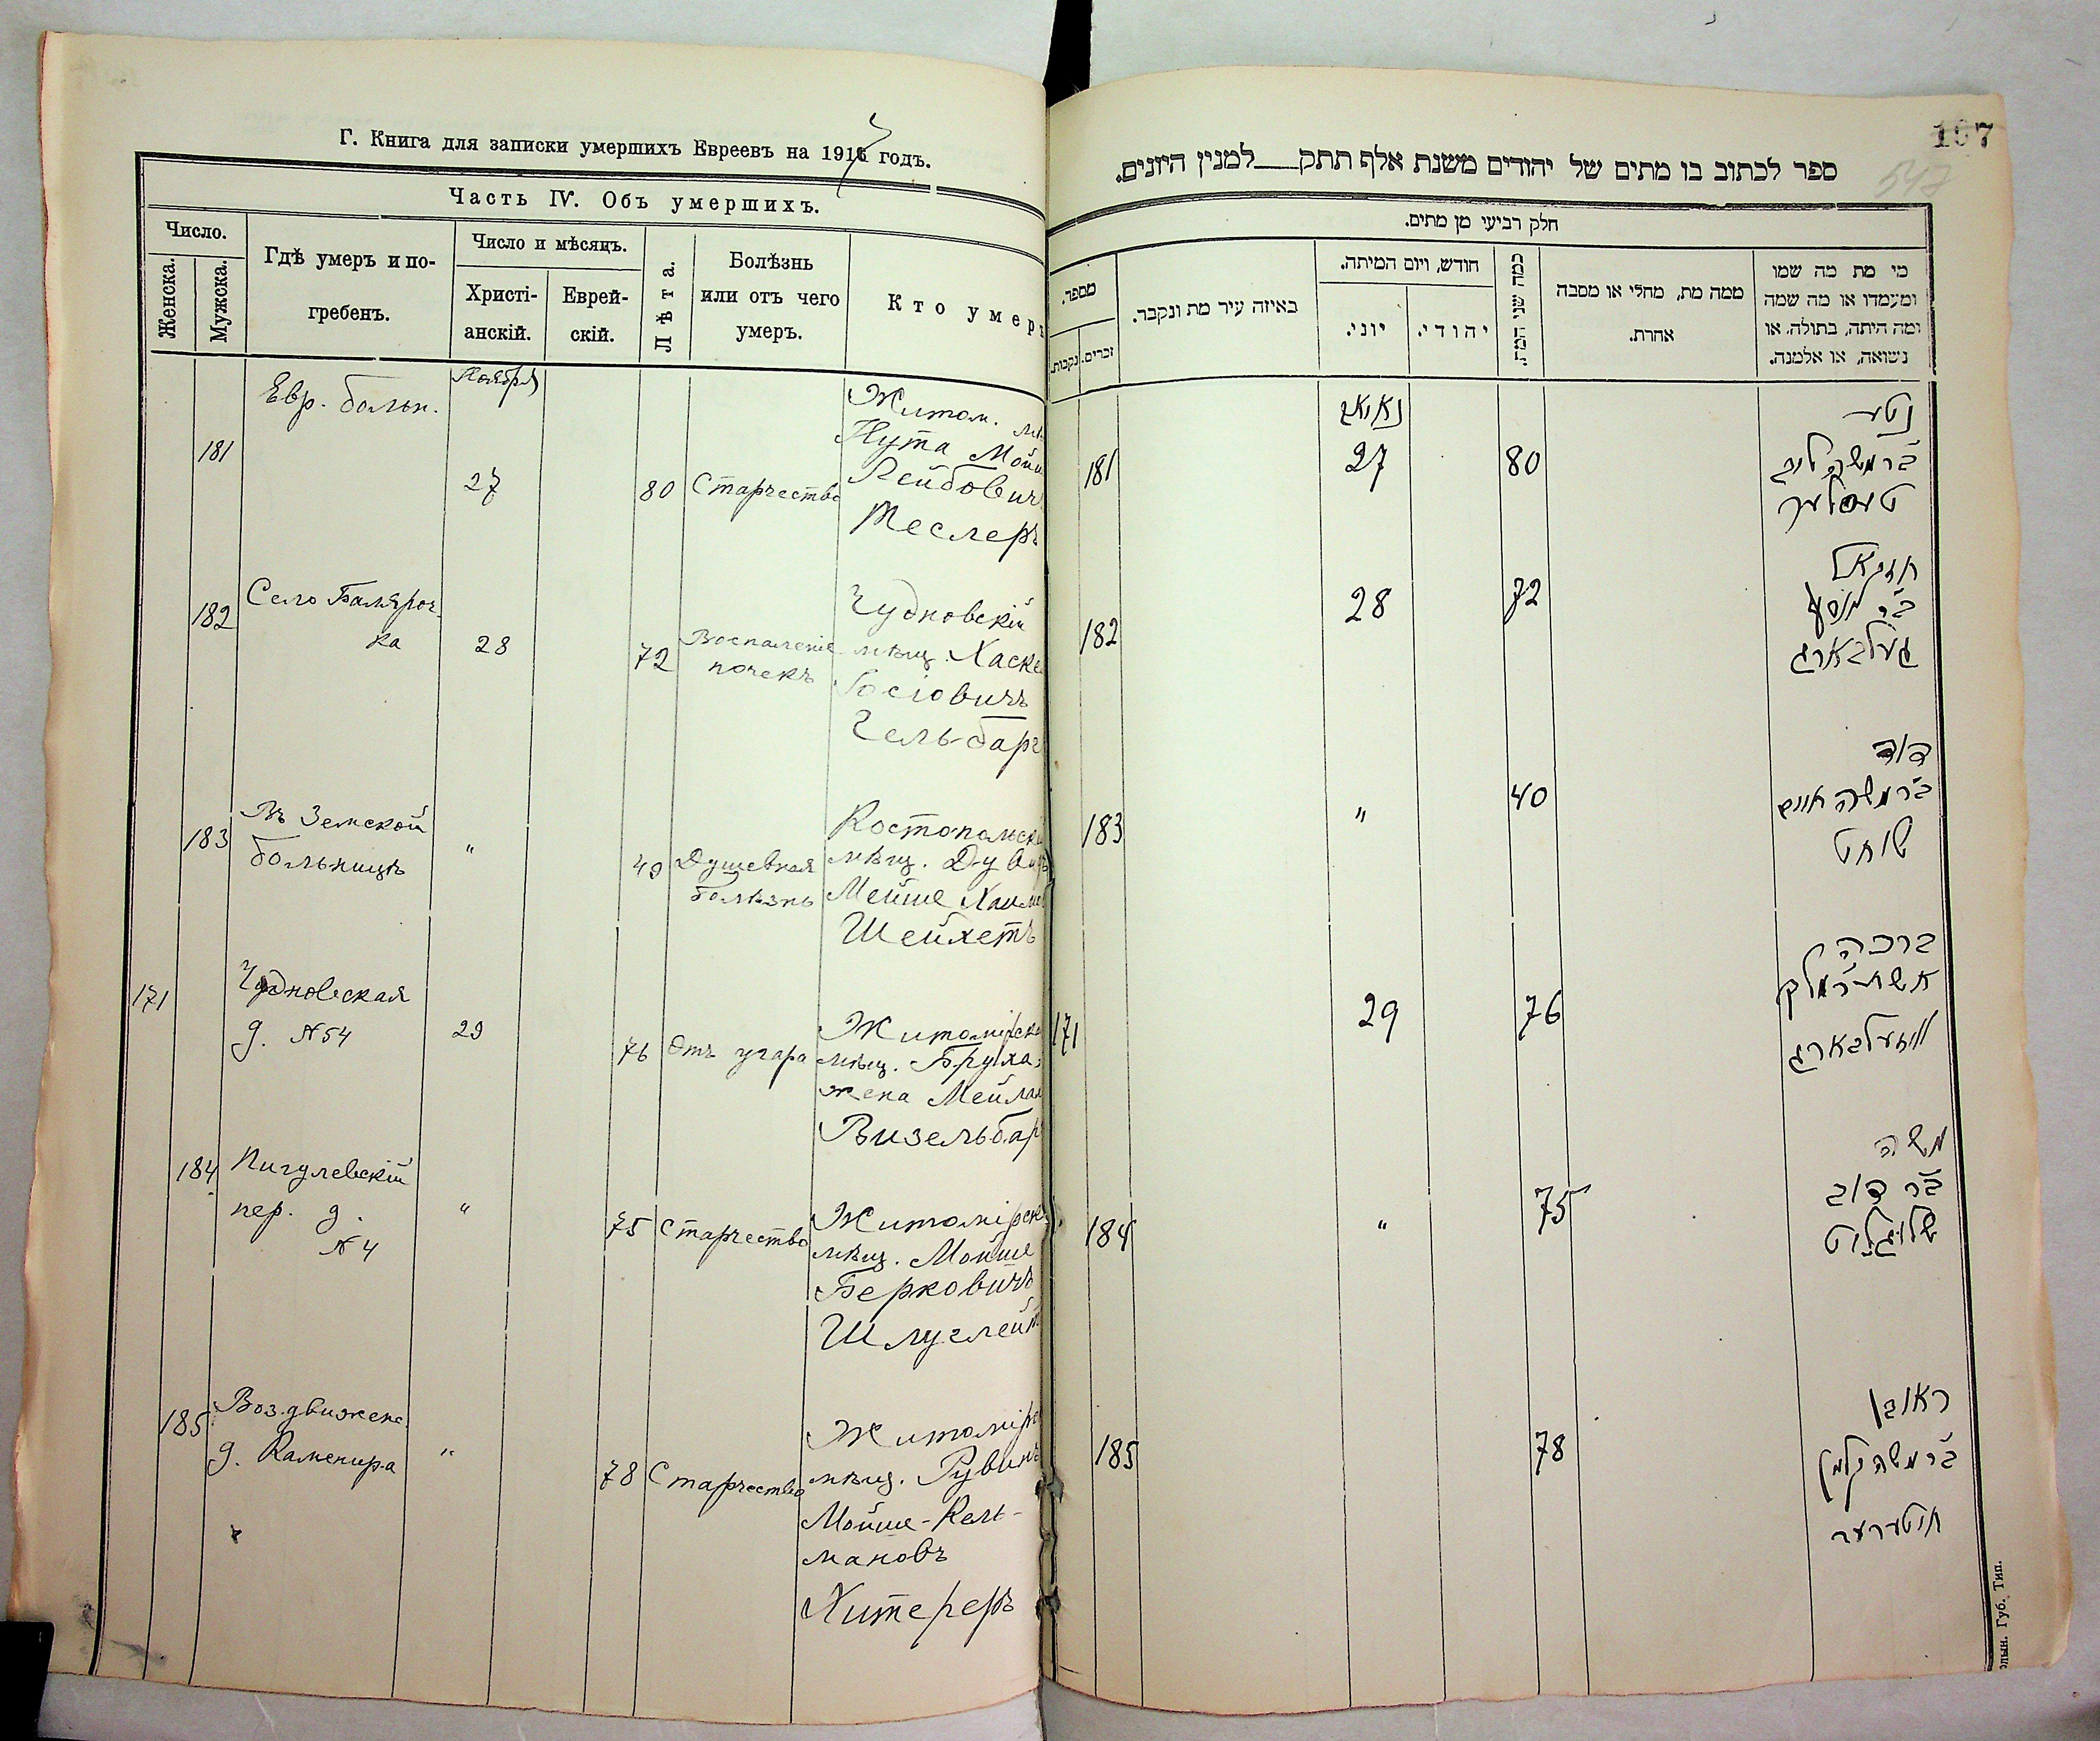 Г. Книга для записки умершихъ Евреевъ на 1917 годъ.
Часть IV. Объ умершихъ.
Число.
Женска.
Мужска.
Гдѣ умеръ и по-
гребенъ.
Число и мѣсяцъ.
Христі-
анскій.
Еврей-
скій.
Лѣта.
Болѣзнь
или отъ чего
умеръ.
Кто умеръ
181
Евр. больн.
Ноября
27
80
Старчество
Житом.
Нута
Лейбович
Теслеръ
182
Село Баляроч-
ка
28
72
Воспаленіе
почекъ
Чудновскій
мѣщ. Хаске
Іосіовичъ
Гельбарг
183
Въ Земской
больницѣ
"
40
Душевная
болѣзнь
Костопольск
мѣщ. Дувидъ
Мейше Хаим
Шейхетъ
171
Чудновская
д. №54
29
76
Отъ угара
Житомірска
мѣщ. Бруха
жена Мейла
Визельбар
184
Пигулевскій
пер. д.
№4
"
75
Старчество
Житомірск
мѣщ. Мойше
Берковичъ
Шлуглейт
185
Воздвиженс.
д. Каменира
"
78
Старчество
Житомірс
мѣщ. Рувинъ
Мойше-Кель-
мановъ
Хитереръ
107
547
ספר לכתוב בו מתים של יהודים משנת אלף תתק למנין היונים.
חלק רביעי מן מתים.
מספר.
נקבות.
זכרים.
באיזה עיר מת ונקבר.
חודש, ויום המיתה.
יוני.
יהודי.
כמה שני המת.
ממה מת, מחלי או מסבה
אחרת.
מי מת מה שמו
ומעמדו או מה שמה
ומה היתה, בתולה, או
נשואה, או אלמנה.
181
27
80
נטע
ב״ר משה ליב
טעסלער
182
28
72
יחזקאל
ב״ר
געלבארג
183
"
40
דוד
ב״ר משה חיים
שוחט
171
29
76
ברכה
אשת ר׳
וויזעלבארג
184
"
75
משה
ב״ר דוב
שלוגלייט
185
78
ראובן
ב״ר משה קלמן
חיטערער
Волын. Губ. Тип.